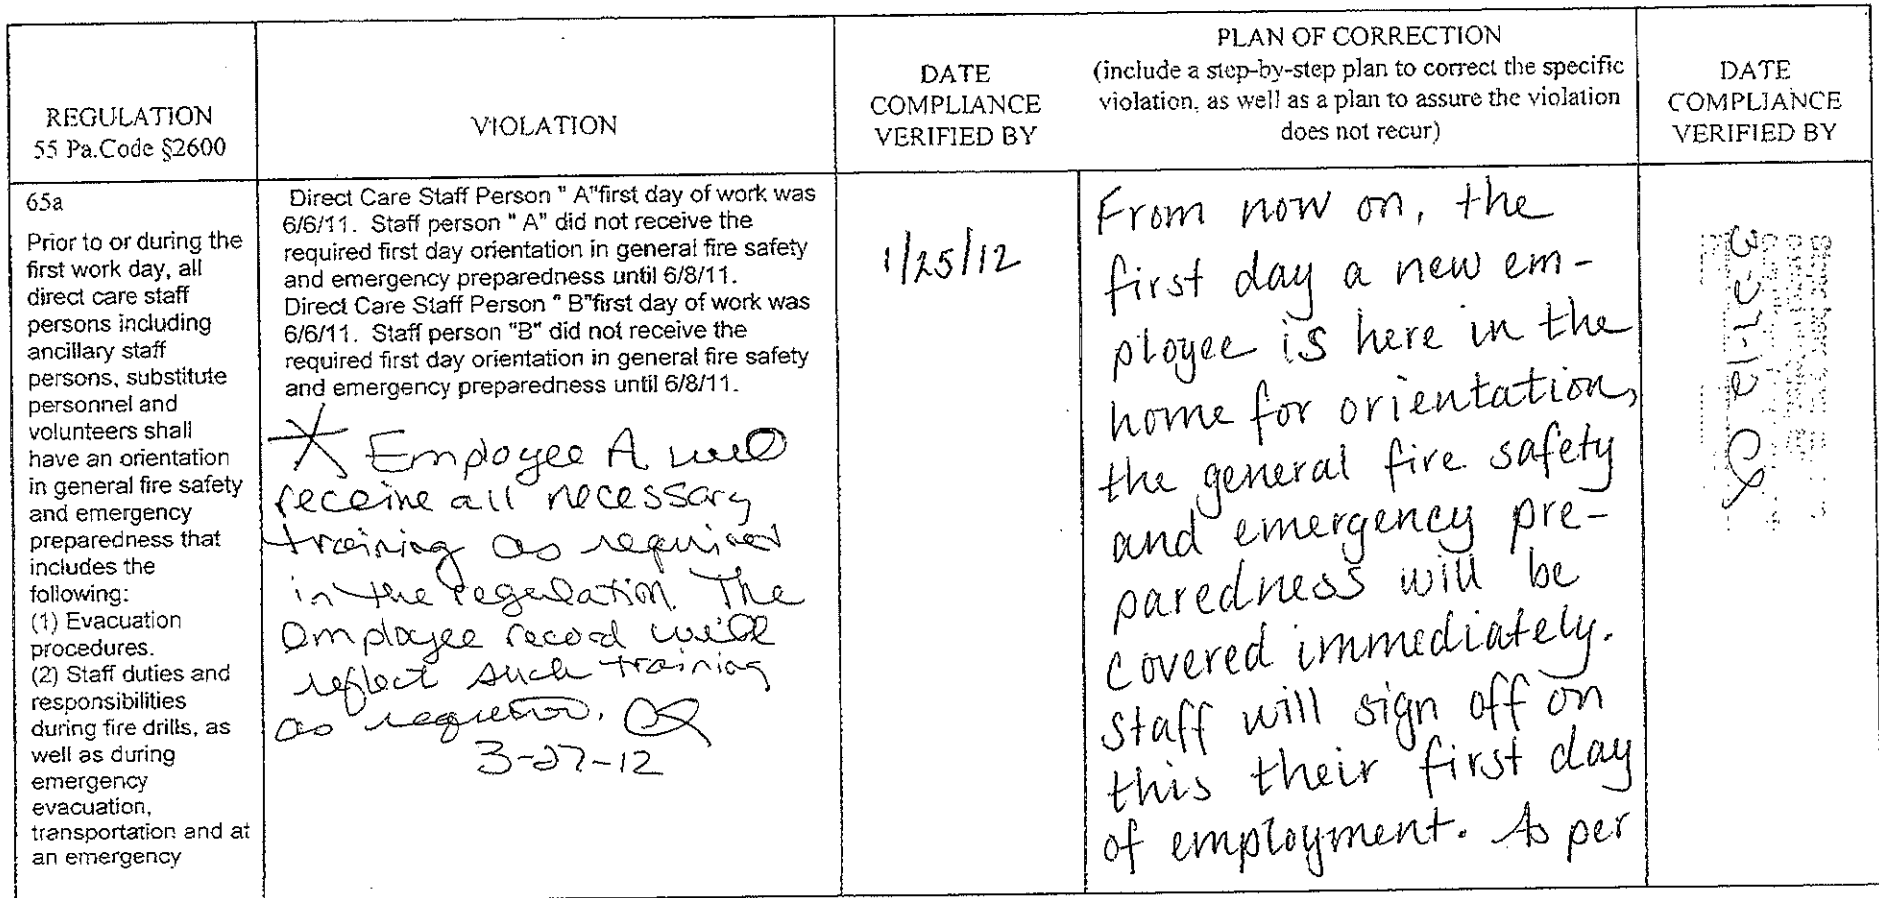 REGULATION
55 Pa.Code §2600
VIOLATION
DATE
COMPLIANCE
VERIFIED BY
PLAN OF CORRECTION
(include a step-by-step plan to correct the specific
violation, as well as a plan to assure the violation
does not recur)
DATE
COMPLIANCE
VERIFIED BY
65a
Prior to or during the
first work day, all
direct care staff
persons including
ancillary staff
persons, substitute
personnel and
volunteers shall
have an orientation
in general fire safety
and emergency
preparedness that
includes the
following:
(1) Evacuation
procedures.
(2) Staff duties and
responsibilities
during fire drills, as
well as during
emergency
evacuation,
transportation and at
an emergency
Direct Care Staff Person " A"first day of work was
6/6/11. Staff person " A" did not receive the
required first day orientation in general fire safety
and emergency preparedness until 6/8/11.
Direct Care Staff Person " B"first day of work was
6/6/11. Staff person "B" did not receive the
required first day orientation in general fire safety
and emergency preparedness until 6/8/11.
Employee A will
receive all necessary
training as required
in the regulation. The
employee record will
reflect such training
as required.
3-27-12
1/25/12
From now on, the
first day a new em-
ployee is here in the
home for orientation,
the general fire safety
and emergency pre-
paredness will be
covered immediately.
Staff will sign off on
this their first day
of employment. As per